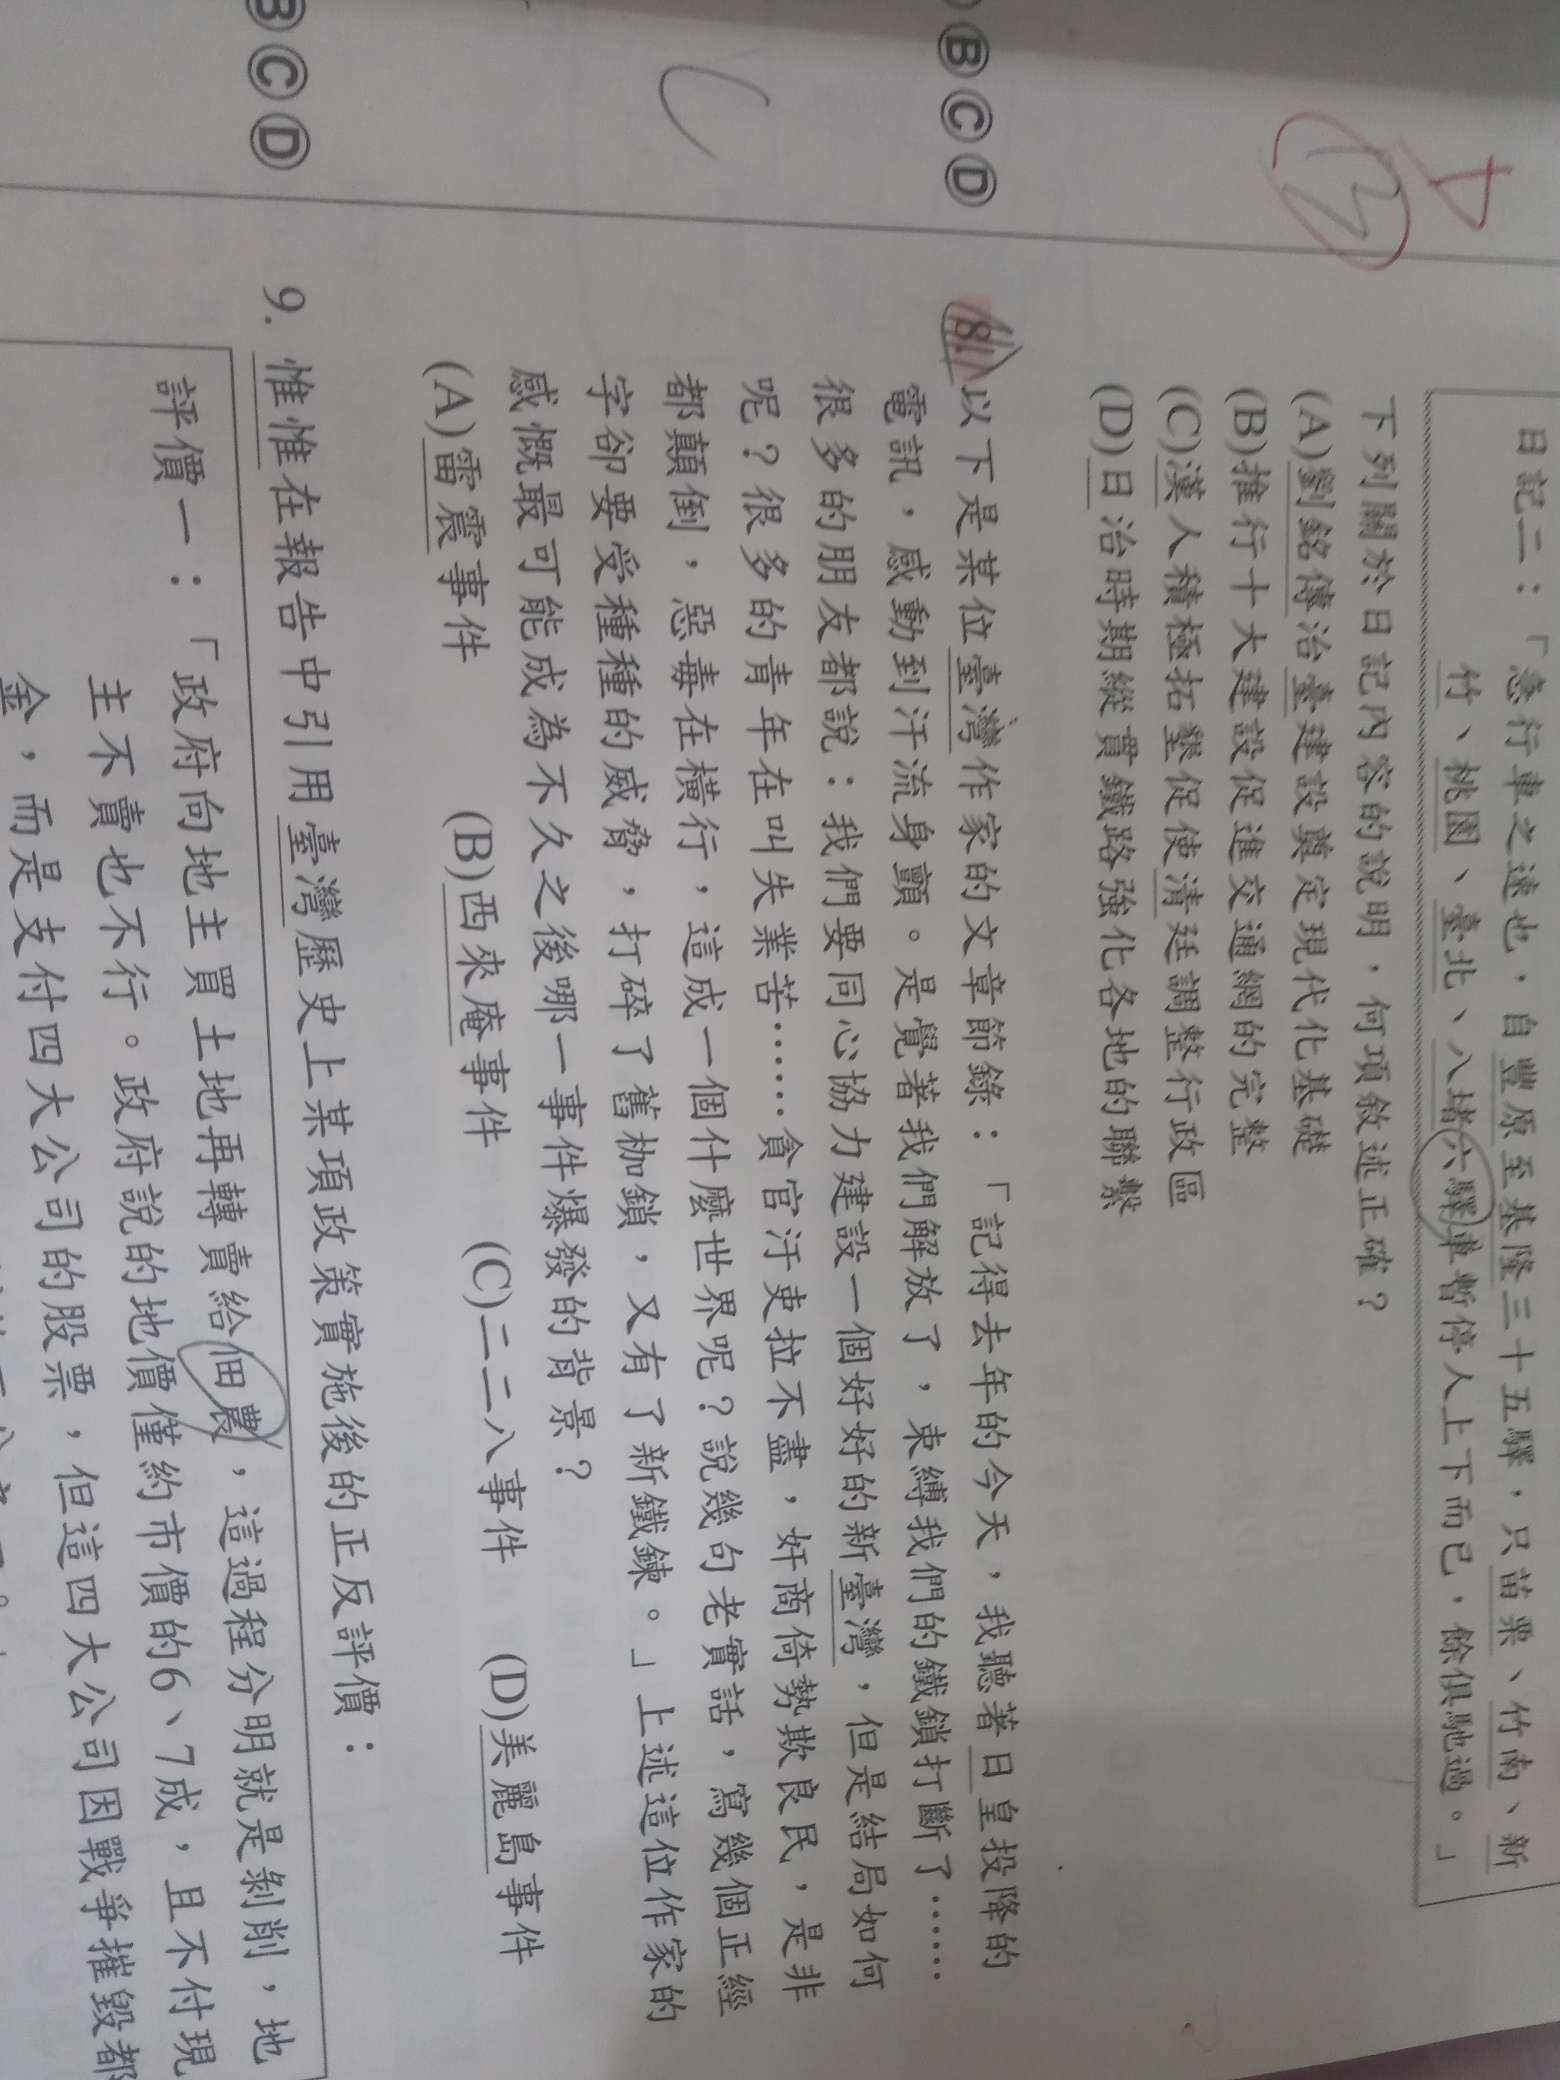 日記二：「急行車之速也，自豐原至基隆三十五驛，只苗栗、竹南、新
竹、桃園、臺北、八堵六驛車暫停人上下而已，餘俱馳過。」
下列關於日記內容的說明，何項敘述正確？
(A)劉銘傳治臺建設奠定現代化基礎
(B)推行十大建設促進交通網的完整
(C)漢人積極拓墾促使清廷調整行政區
(D)日治時期縱貫鐵路強化各地的聯繫
D
B
B C D
8. 以下是某位臺灣作家的文章節錄：「記得去年的今天，我聽著日皇投降的
電訊，感動到汗流身顫。是覺著我們解放了，束縛我們的鐵鎖打斷了……
很多的朋友都說：我們要同心協力建設一個好好的新臺灣，但是結局如何
呢？很多的青年在叫失業苦……貪官汙吏拉不盡，奸商倚勢欺良民，是非
都顛倒，惡毒在橫行，這成一個什麼世界呢？說幾句老實話，寫幾個正經
字卻要受種種的威脅，打碎了舊枷鎖，又有了新鐵鍊。」上述這位作家的
感慨最可能成為不久之後哪一事件爆發的背景？
(A)雷震事件 (B)西來庵事件 (C)二二八事件 (D)美麗島事件
C
B C D
9. 惟惟在報告中引用臺灣歷史上某項政策實施後的正反評價：
評價一：「政府向地主買土地再轉賣給佃農，這過程分明就是剝削，地
主不賣也不行。政府說的地價僅約市價的6、7成，且不付現
金，而是支付四大公司的股票，但這四大公司因戰爭摧毀都